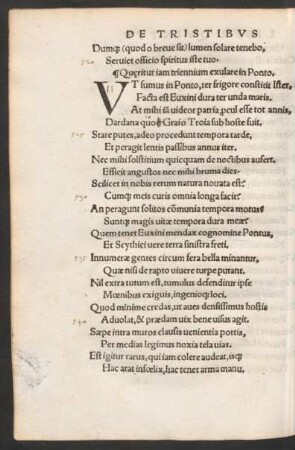 DE TRISTIBVS
Dumq; (quod o breue sit) lumen solare tenebo,
Seruiet officio spiritus iste tuo.
¶Quęritur iam triennium exulare in Ponto,
VT sumus in Ponto, ter frigore constitit Ister,
Facta est Euxini dura ter unda maris.
At mihi iã uideor patria ꝓcul esse tot annis,
Dardana quot Graio Troia sub hoste fuit.
Stare putes, adeo procedunt tempora tarde,
Et peragit lentis passibus annus iter.
Nec mihi solstitium quicquam de noctibus aufert.
Efficit angustos nec mihi bruma dies.
Scilicet in nobis rerum natura nouata est?
Cumq; meis curis omnia longa facit?
An peragunt solitos cõmunia tempora motus?
Suntq; magis uitæ tempora dura meæ?
Quem tenet Euxini mendax cognomine Pontus,
Et Scythici uere terra sinistra freti,
Innumeræ gentes circum fera bella minantur,
Quæ nisi de rapto uiuere turpe putant.
Nil extra tutum est, tumulus defenditur ipse
Mœnibus exiguis, ingenioq; loci.
Quod minime credas, ut aues densissimus hostis
Aduolat, & prædam uix bene uisus agit.
Sæpe intra muros clausis uenientia portis,
Per medias legimus noxia tela uias.
Est igitur rarus, qui iam colere audeat, isq;
Hac arat infœlix, hac tenet arma manu,